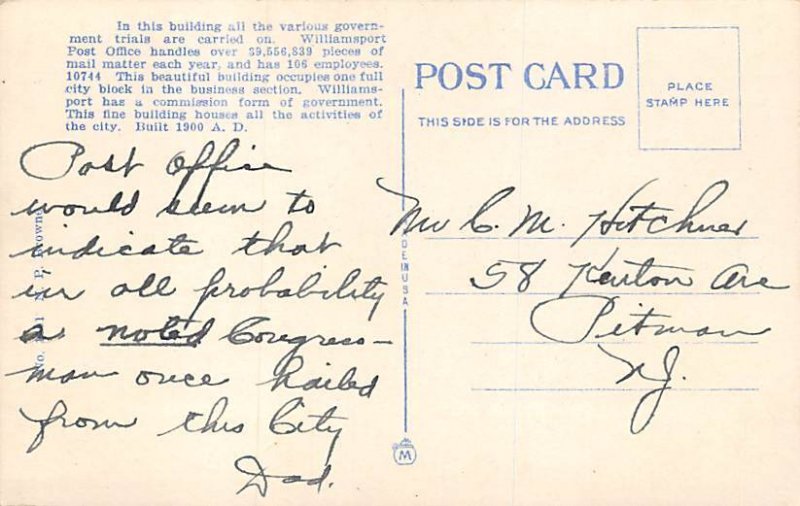 In this building all the various govern-
ment trials are carried on. Williamsport
Post Office handles over 39,556,839 pieces of
mail matter each year, and has 106 employees.
10744 This beautiful building occupies one full
city block in the business section. Williams-
port has a commission form of government.
This fine building houses all the activities of
the city. Built 1900 A. D.
Post Office
would seem to
indicate that
in all probability
a noted Congress-
man once hailed
from this City
Dad.
POST CARD
THIS SIDE IS FOR THE ADDRESS
PLACE
STAMP HERE
Mr C. M. Hitchner
58 Kenton Ave
Pitman
NJ.
DE IN U.S.A.
M